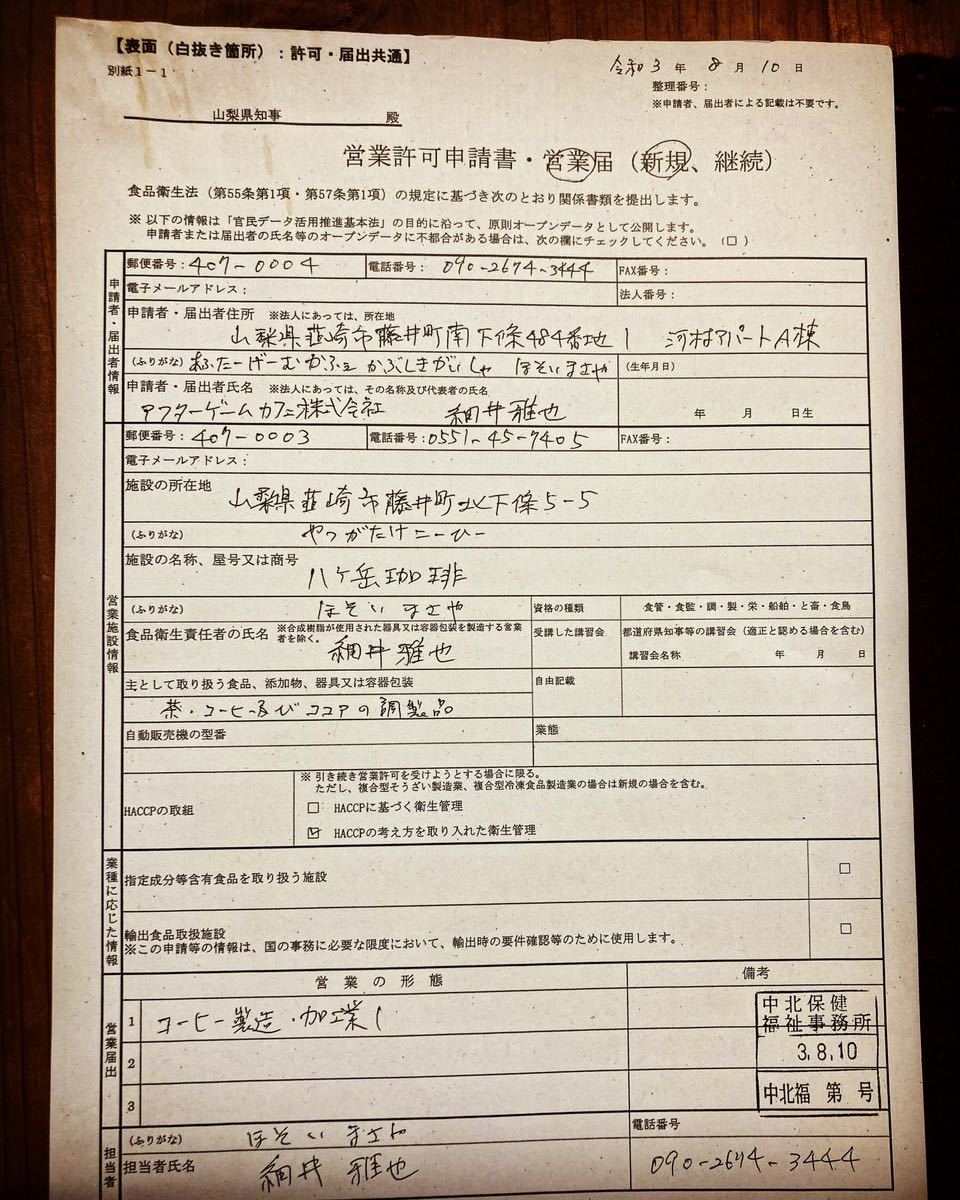 【表面（白抜き箇所）：許可・届出共通】
別紙１－１
令和 3 年 8 月 10 日
整理番号：
※申請者、届出者による記載は不要です。
山梨県知事 殿
営業許可申請書・営業届（新規、継続）
食品衛生法（第55条第1項・第57条第1項）の規定に基づき次のとおり関係書類を提出します。
※ 以下の情報は「官民データ活用推進基本法」の目的に沿って、原則オープンデータとして公開します。
申請者または届出者の氏名等のオープンデータに不都合がある場合は、次の欄にチェックしてください。（□）
申請者・届出者情報
郵便番号：407-0004 電話番号：090-2674-3444 FAX番号：
電子メールアドレス： 法人番号：
申請者・届出者住所 ※法人にあっては、所在地
山梨県韮崎市藤井町南下條484番地1 河村アパートA棟
（ふりがな）あふたーげーむかふぇ かぶしきがいしゃ ほそいまさや （生年月日）
申請者・届出者氏名 ※法人にあっては、その名称及び代表者の氏名
アフターゲームカフェ株式会社 細井雅也 年 月 日生
営業施設情報
郵便番号：407-0003 電話番号：0551-45-7405 FAX番号：
電子メールアドレス：
施設の所在地
山梨県韮崎市藤井町北下條5-5
（ふりがな） やつがたけこーひー
施設の名称、屋号又は商号
八ケ岳珈琲
（ふりがな） ほそい まさや 資格の種類 食管・食監・調・製・栄・船舶・と畜・食鳥
食品衛生責任者の氏名 ※合成樹脂が使用された器具又は容器包装を製造する営業者を除く。 受講した講習会 都道府県知事等の講習会（適正と認める場合を含む）
細井 雅也 講習会名称 年 月 日
主として取り扱う食品、添加物、器具又は容器包装 自由記載
茶・コーヒー及びココアの調製品
自動販売機の型番 業態
HACCPの取組
※ 引き続き営業許可を受けようとする場合に限る。
ただし、複合型そうざい製造業、複合型冷凍食品製造業の場合は新規の場合を含む。
□ HACCPに基づく衛生管理
☑ HACCPの考え方を取り入れた衛生管理
業種に応じた情報
指定成分等含有食品を取り扱う施設 □
輸出食品取扱施設 □
※この申請等の情報は、国の事務に必要な限度において、輸出時の要件確認等のために使用します。
営業届出
営業の形態 備考
1 コーヒー製造・加工業
2
3
中北保健
福祉事務所
3.8.10
中北福 第 号
担当者
（ふりがな） ほそい まさや 電話番号
担当者氏名 細井 雅也 090-2674-3444